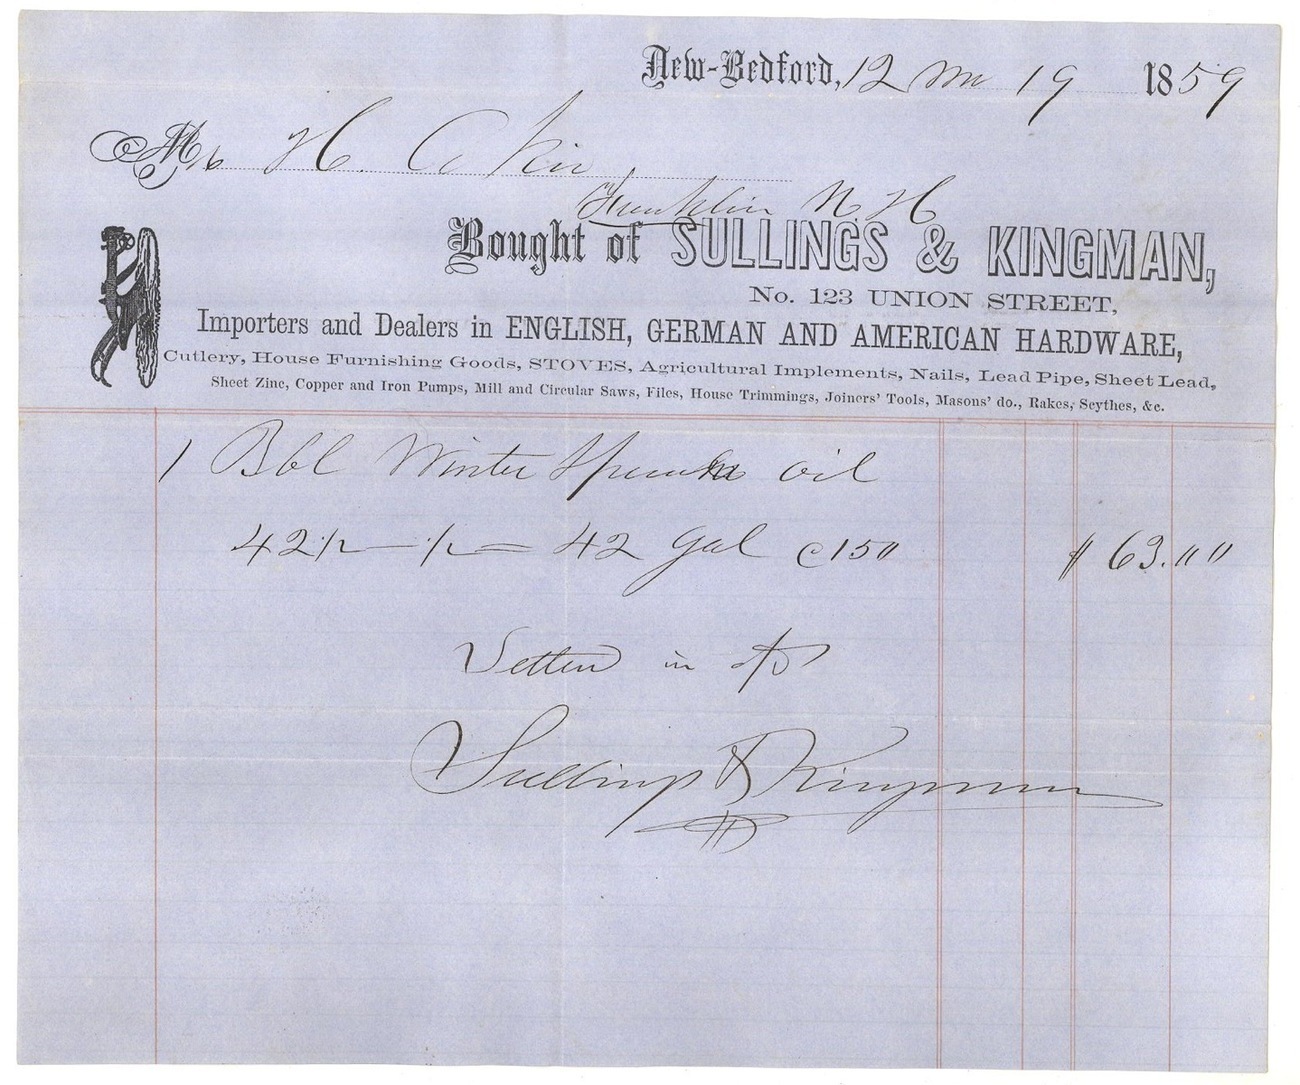 New-Bedford, 12 mo 19 1859
M H.
Franklin N H
Bought of SULLINGS & KINGMAN,
No. 123 UNION STREET,
Importers and Dealers in ENGLISH, GERMAN AND AMERICAN HARDWARE,
Cutlery, House Furnishing Goods, STOVES, Agricultural Implements, Nails, Lead Pipe, Sheet Lead,
Sheet Zinc, Copper and Iron Pumps, Mill and Circular Saws, Files, House Trimmings, Joiners' Tools, Masons' do., Rakes, Scythes, &c.
1 Bbl Winter Sperm oil
42½ — ½ = 42 gal @ 150 $ 63.00
Settled in
Sullings & Kingman